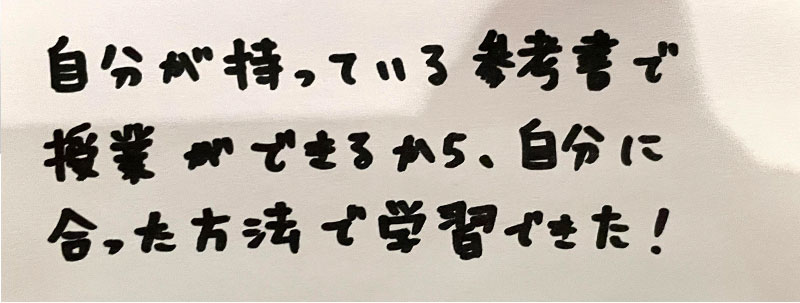 自分が持っている参考書で
授業ができるから、自分に
合った方法で学習できた!